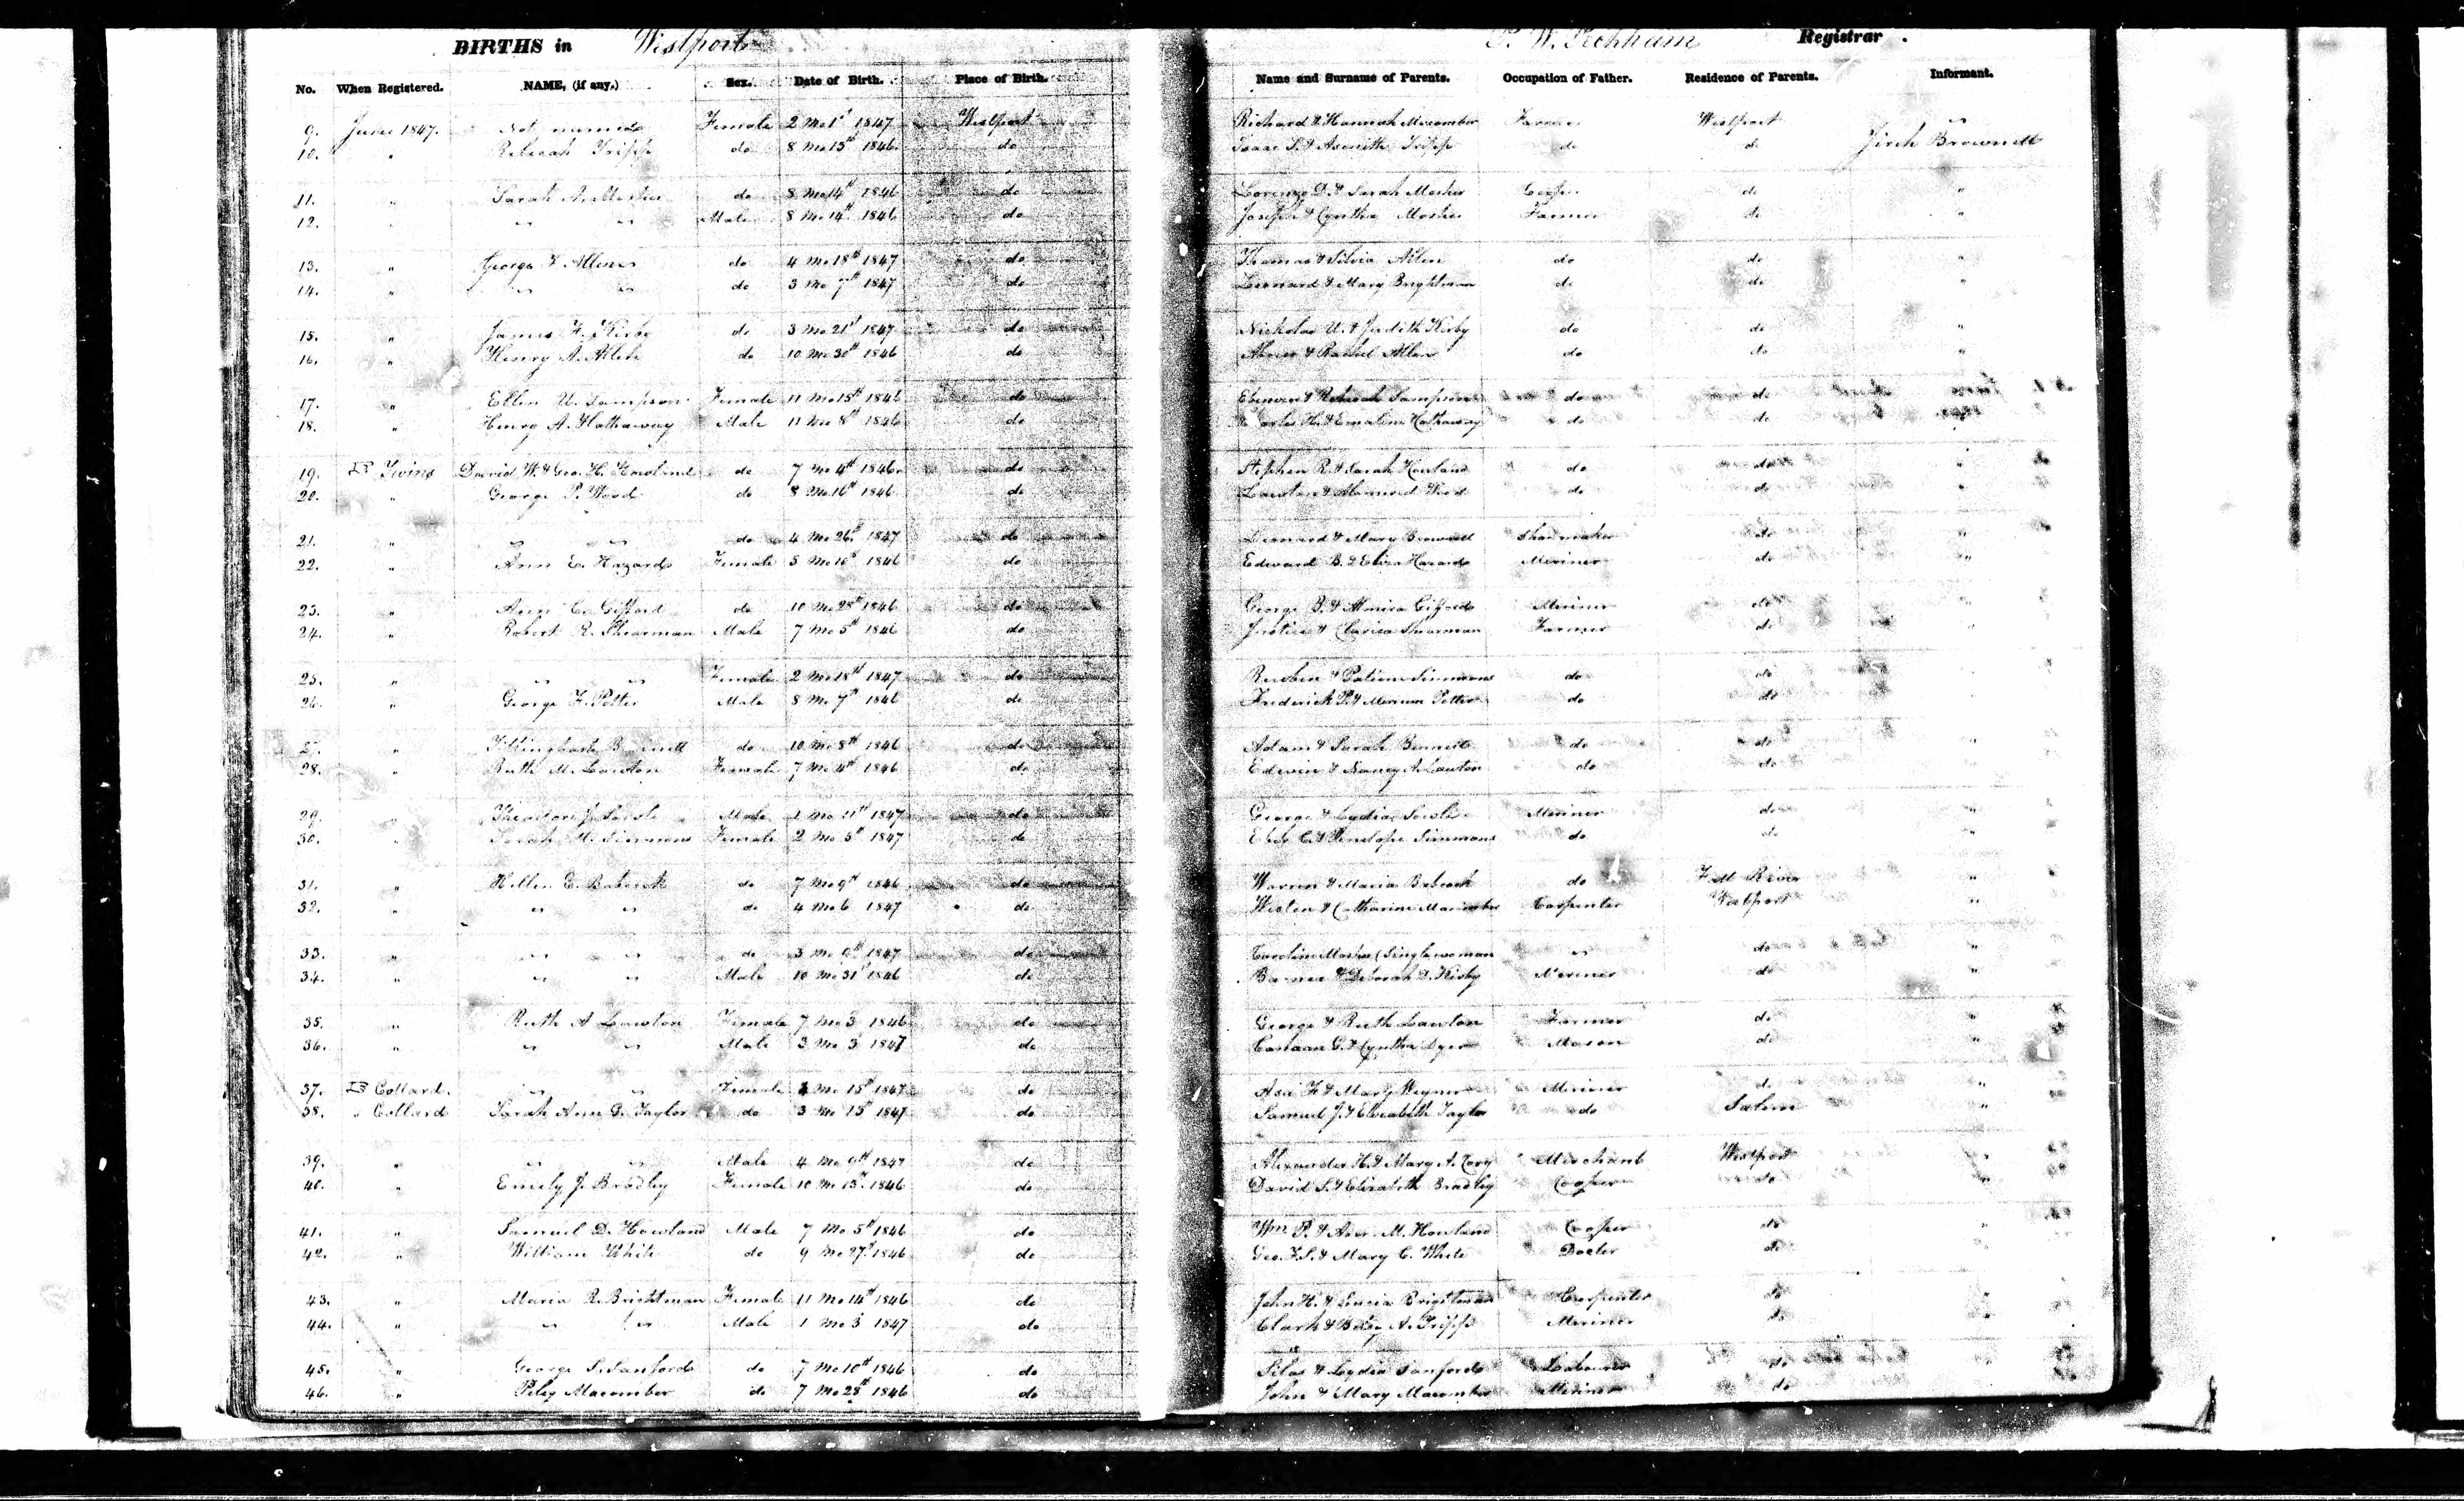 BIRTHS in Westport P. W. Peckham Registrar.
No. When Registered. NAME, (if any.) Sex. Date of Birth. Place of Birth. Name and Surname of Parents. Occupation of Father. Residence of Parents. Informant.
9. June 1847. Not named Female 2 Mo 1st 1847 Westport Richard & Hannah Macomber Farmer Westport "
10. " Rebecah Tripp do 8 Mo 13th 1846 do Isaac S. & Asenith Tripp do do Jirch Brownell
11. " Sarah A. Mosher do 8 Mo 14th 1846 do Lorenzo D. & Sarah Mosher Cooper do "
12. " " " Male 8 Mo 14th 1846 do Joseph & Cynthia Mosher Farmer do "
13. " George F. Allen do 4 Mo 18th 1847 do Thomas & Silvia Allen do do "
14. " " " do 3 Mo 7th 1847 do Leonard & Mary Brightman do do "
15. " James H. Kirby do 3 Mo 21st 1847 do Nicholas U. & Judith Kirby do do "
16. " Henry A. Allen do 10 Mo 30th 1846 do Abner & Rachel Allen do do "
17. " Ellen U. Sampson Female 11 Mo 15th 1846 do Ebenezer & Rebecah Sampson do do
18. " Henry A. Hathaway Male 11 Mo 8th 1846 do Charles H. & Emaline Hathaway do do
19. Twins David W. & Geo. H. Howland do 7 Mo 4th 1846 do Stephen R. & Sarah Howland do do "
20. " George P. Wood do 8 Mo 16th 1846 do Lawton & Wood do do "
21. " " " do 4 Mo 26th 1847 do Leonard & Mary Brownell Shoemaker do "
22. " Ann E. Hazard Female 5 Mo 10th 1846 do Edward B. & Eliza Hazard Meriner do "
23. " Ann C. Gifford do 10 Mo 28th 1846 do George B. & Gifford Meriner do "
24. " Robert R. Shearman Male 7 Mo 5th 1846 do Justice & Clarisa Shearman Farmer do "
25. " " " Female 2 Mo 18th 1847 do Reuben & Patience Simmons do do "
26. " George F. Potter Male 8 Mo 7th 1846 do Frederick P. & Potter do do "
27. " Tillinghast B do 10 Mo 8th 1846 do Adam & Sarah Bennett do do "
28. " Ruth M. Lawton Female 7 Mo 4th 1846 do Edwin & Nancy A. Lawton do do "
29. " Male 1 Mo 11th 1847 do George & Lydia Meriner do "
30. " Sarah M. Simmons Female 2 Mo 5th 1847 do C. & Penelope Simmons do do "
31. " Hellen E. Babcock do 7 Mo 9th 1846 do Warren & Maria Babcock do Fall River "
32. " " " do 4 Mo 6 1847 do Weston & Catharine Macomber Carpenter Westport "
33. " " " do 3 Mo 9th 1847 do Caroline Mosher (Single woman " do "
34. " " " Male 10 Mo 31st 1846 do Barney & Deborah D. Kirby Meriner do "
35. " Ruth A Lawton Female 7 Mo 3 1846 do George & Ruth Lawton Farmer do "
36. " " " Male 3 Mo 3 1847 do Canaan G. & Cynthia Dyer Mason do "
37. Collard. " " Female Mo 15th 1847 do Asa F. & Mary Wegner Meriner do "
38. " Collard Sarah Ann D. Taylor do 3 Mo 13th 1847 do Samuel J. & Elizabeth Taylor do Salem "
39. " " " Male 4 Mo 1847 do Alexander H. & Mary A. Cory Merchant Westport "
40. " Emily J. Bradley Female 10 Mo 13th 1846 do David S. & Elizabeth Bradley Cooper do "
41. " Samuel D. Howland Male 7 Mo 5th 1846 do Wm P. & M. Howland Cooper do "
42. " William White do 9 Mo 27th 1846 do Geo. F. S. & Mary C. White Docter do
43. " Maria R. Brightman Female 11 Mo 14th 1846 do John H. & Brightman Carpenter do "
44. " " " Male 1 Mo 3 1847 do Clark & A. Tripp Meriner do "
45. " George S. Sanford do 7 Mo 10th 1846 do Silas & Lydia Sanford Labourer do "
46. " Peley Macomber do 7 Mo 28th 1846 do John & Mary Macomber Meriner do "